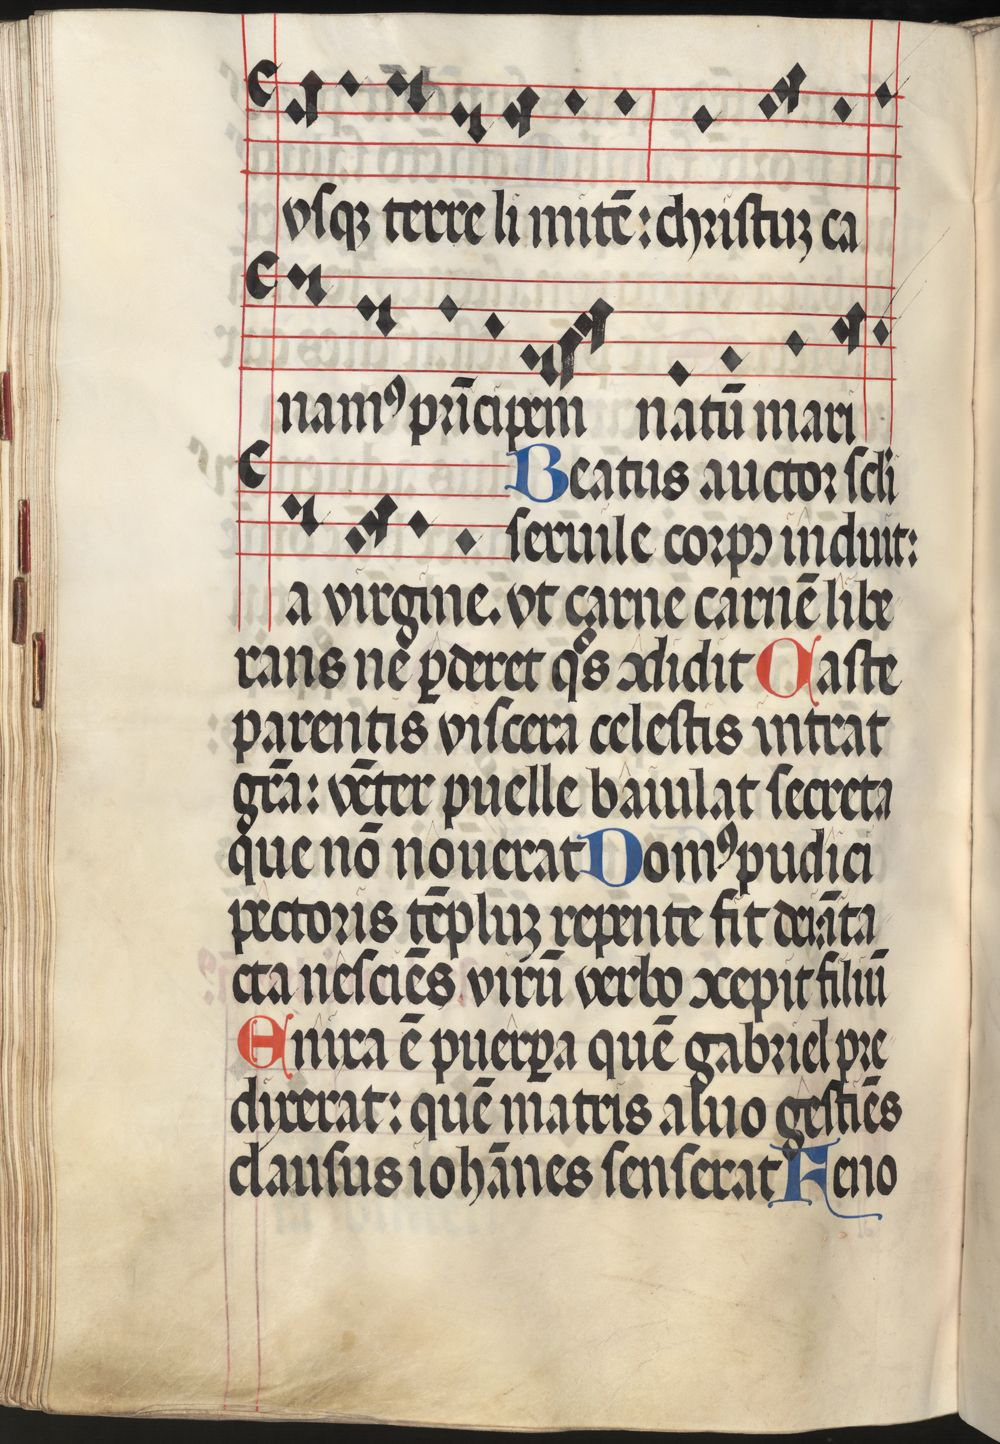 vsqꝫ terre li mitē: christuꝫ ca
namꝰ prīcipem natū mari
Beatus auctor scli
seruile corpꝯ induit:
a virgine. vt carne carnē libe
rans nē ꝑderet qͦs ↄdidit Caste
parentis viscera celestis intrat
grā: vēter puelle baiulat secreta
que nō nouerat Domꝰ pudici
pectoris tēpluꝫ repente fit dei: īta
cta nesciēs virū verbo ↄcepit filiū
Enixa ē puerꝑa quē gabriel pre
dixerat: quē matris aluo gestiēs
clausus iohānes senserat Feno